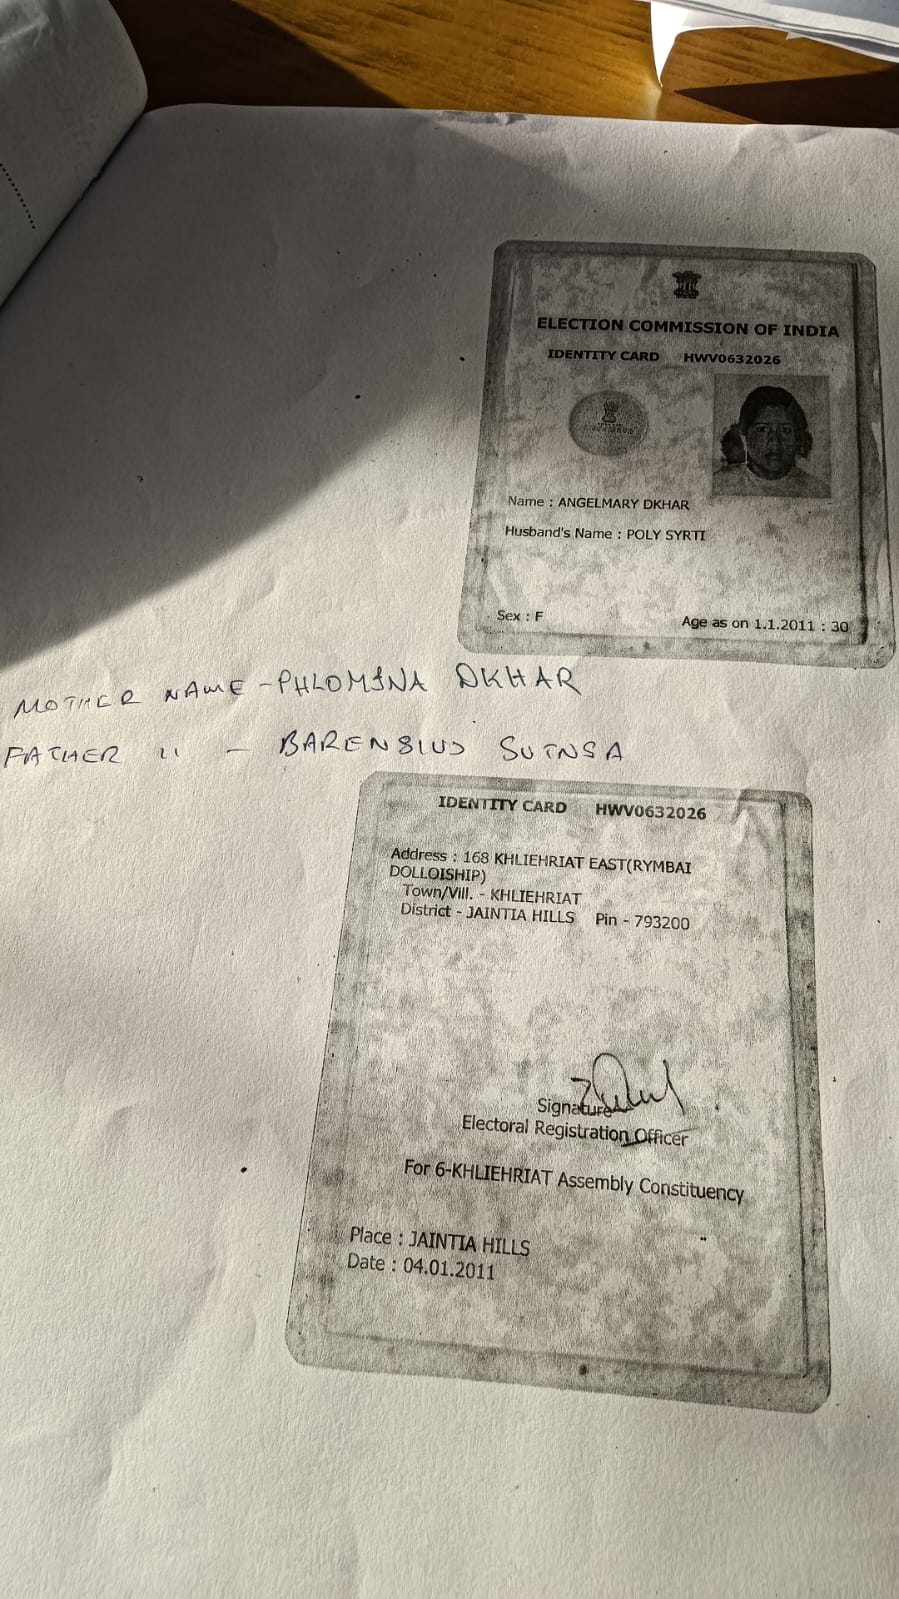 ELECTION COMMISSION OF INDIA
IDENTITY CARD HWV0632026
Name : ANGELMARY DKHAR
Husband's Name : POLY SYRTI
Sex : F
Age as on 1.1.2011 : 30
MOTHER NAME - PHLOMINA DKHAR
FATHER " - BARENSIUS SUTNGA
IDENTITY CARD HWV0632026
Address : 168 KHLIEHRIAT EAST(RYMBAI
DOLLOISHIP)
Town/Vill. - KHLIEHRIAT
District - JAINTIA HILLS Pin - 793200
Signature
Electoral Registration Officer
For 6-KHLIEHRIAT Assembly Constituency
Place : JAINTIA HILLS
Date : 04.01.2011